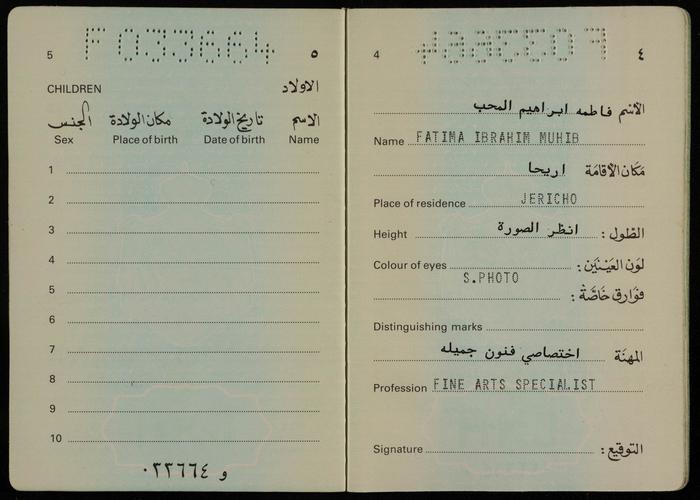 5 F033664 ٥
CHILDREN الاولاد
الاسم تاريخ الولادة مكان الولادة الجنس
Sex Place of birth Date of birth Name
1
2
3
4
5
6
7
8
9
10
و ٠٣٣٦٦٤
4 F033664 ٤
الاسم فاطمه ابراهيم المحب
Name FATIMA IBRAHIM MUHIB
مكان الاقامة اريحا
Place of residence JERICHO
الطول : انظر الصورة
Height
لون العينين :
Colour of eyes
S.PHOTO
فوارق خاصة :
Distinguishing marks
المهنة اختصاصي فنون جميله
Profession FINE ARTS SPECIALIST
التوقيع :
Signature